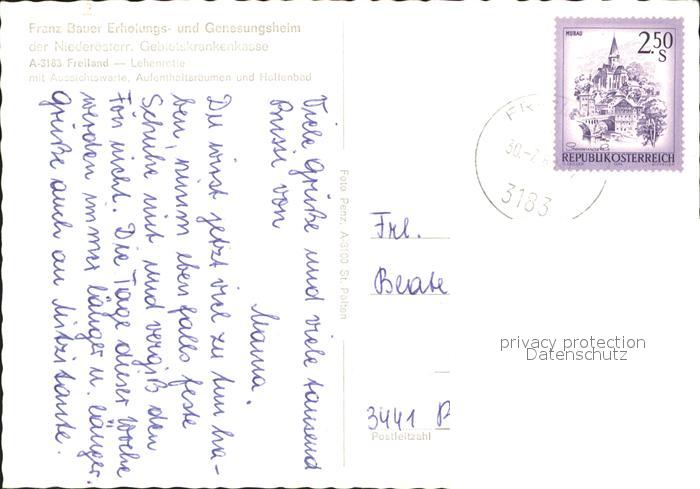 Franz Bauer Erholungs- und Genesungsheim
der Niederösterr. Gebietskrankenkasse
A-3183 Freiland — Lehenrotte
mit Aussichtswarte, Aufenthaltsräumen und Hallenbad
Viele Grüße und viele tausend
Bussi von
Mama.
Du wirst jetzt viel zu tun ha-
ben, nimm eben falls feste
Schuhe mit und vergiß den
Fön nicht. Die Tage dieser Woche
werden immer länger u. länger.
Grüße auch an Mitzitante.
Foto Penz, A-3100 St. Pölten
MURAU
2.50
S
REPUBLIK ÖSTERREICH
30.-7.
3183
Frl.
Beate
privacy protection
Datenschutz
3441
Postleitzahl